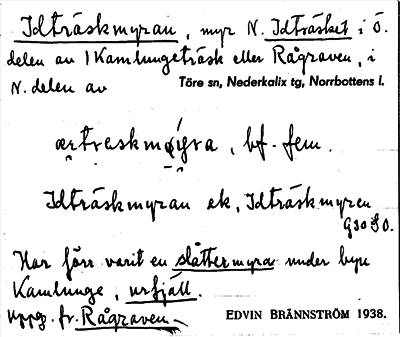 Idträskmyran, myr N. Idträsket i Ö.
delen av l Kamlungeträsk eller Rågraven, i
N. delen av Töre sn, Nederkalix tg, Norrbottens l.
bf. fem.
Idträskmyran ek, Idträskmyren
GSO SO.
Har förr varit en slåttermyra under byn
Kamlunge, urfjäll.
uppg. fr. Rågraven
EDVIN BRÄNNSTRÖM 1938.